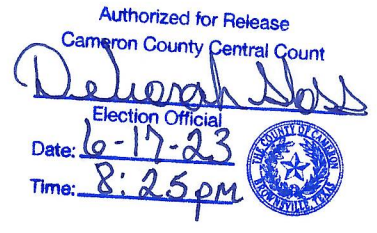 Authorized for Release
Cameron County Central Count
Deborah Sloss
Election Official
Date: 6-17-23
Time: 8:25pm
THE COUNTY OF CAMERON
BROWNSVILLE, TEXAS